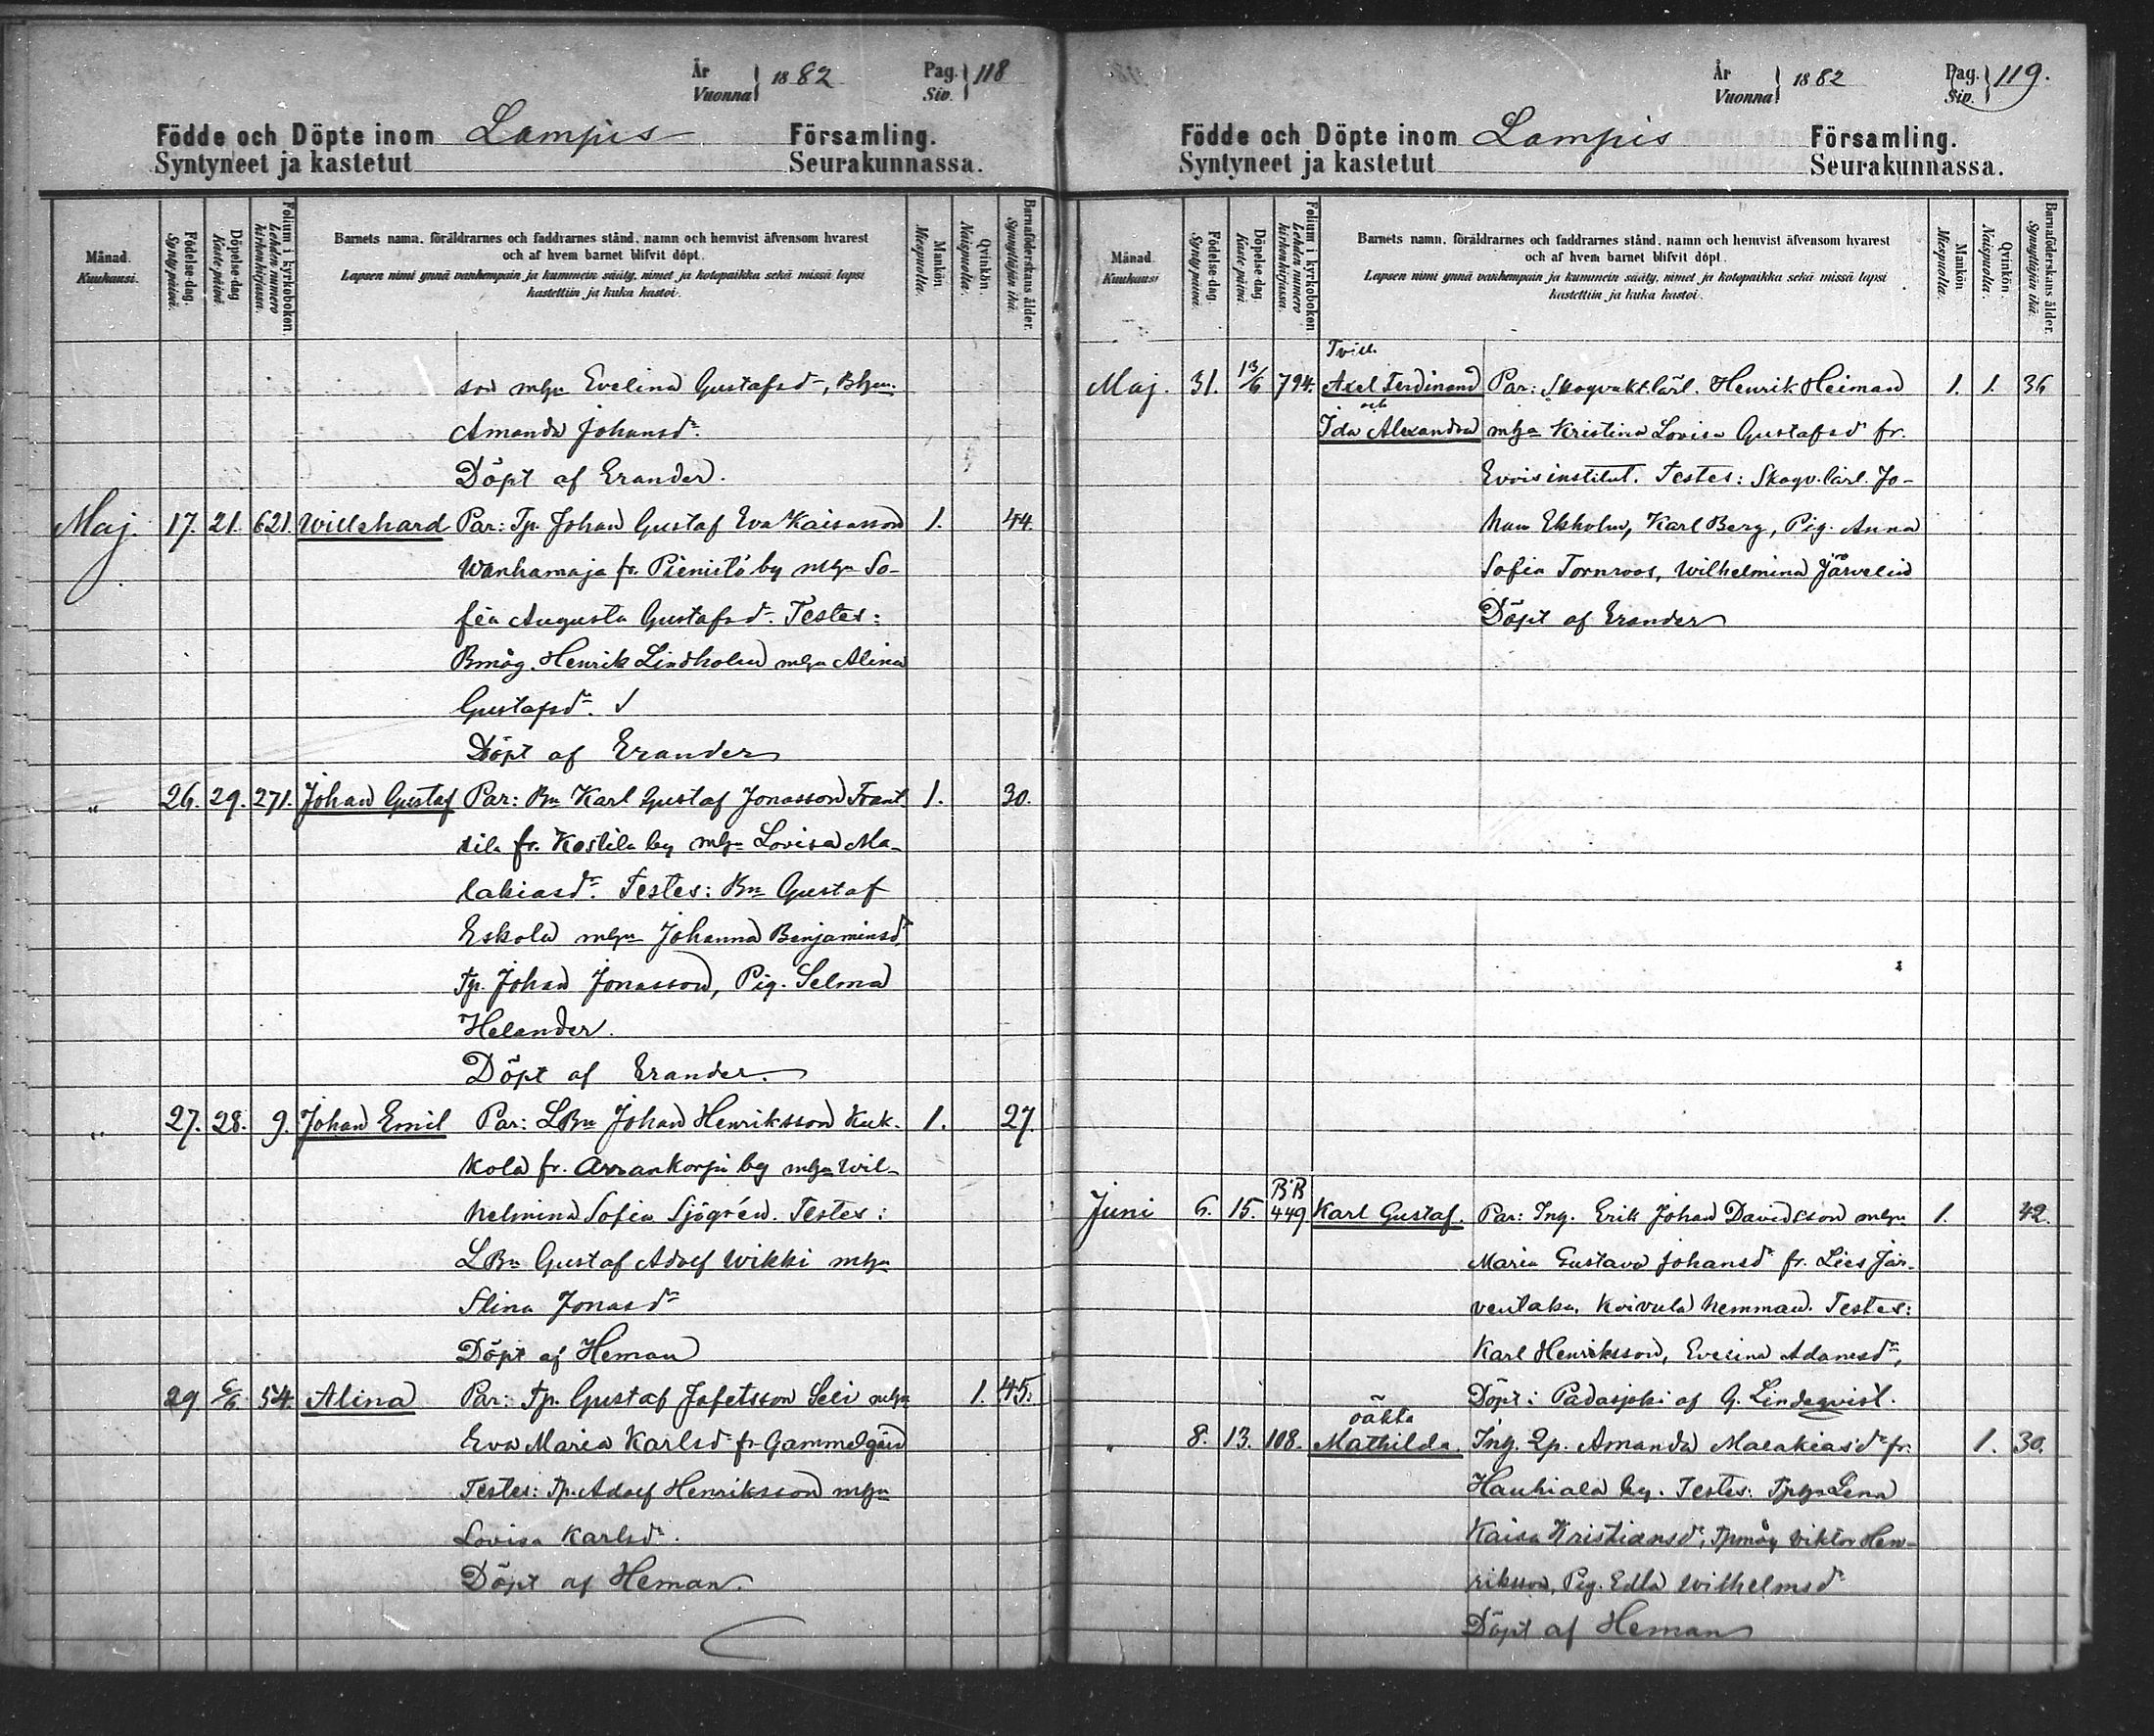 År
Vuonna } 1882
Pag.
Siv. } 118
Födde och Döpte inom Lampis Församling.
Syntyneet ja kastetut Seurakunnassa.
Månad. Kuukausi.
Födelse-dag. Syntypäivä.
Döpelse-dag. Kastepäivä.
Folium i kyrkoboken. Lehden numero kirkonkirjassa.
Barnets namn, föräldrarnes och faddrarnes stånd, namn och hemvist äfvensom hvarest
och af hvem barnet blifvit döpt.
Lapsen nimi ynnä vanhempain ja kummein sääty, nimet ja kotopaikka sekä missä lapsi
kastettiin ja kuka kastoi.
Mankön. Miespuolia.
Qvinkön. Naispuolia.
Barnaföderskans ålder. Synnyttäjän ikä.
son mhu Evelina Gustafsdr, Bhu
Amanda Johansdr.
Döpt af Erander.
Maj. 17. 21. 621. Willehard Par: Tp. Johan Gustaf Eva Kaisasson 1. 44.
Wanhamaja fr. Pienistö by mhu So-
fia Augusta Gustafsdr. Testes:
Bmåg. Henrik Lindholm mhu Alina
Gustafsdr.
Döpt af Erander
" 26. 29. 271. Johan Gustaf Par: Bn Karl Gustaf Jonasson Frant 1. 30.
sila fr. Kostila by mhu Lovisa Ma-
lakiasdr. Testes: Bn Gustaf
Eskola mhu Johanna Benjaminsdr,
Tp. Johan Jonasson, Pig. Selma
Helander.
Döpt af Erander.
" 27. 28. 9. Johan Emil Par: LBn Johan Henriksson Kuk- 1. 27.
kola fr. Arrankorpi by mhu Wil-
helmina Sofia Sjögrén. Testes:
LBn Gustaf Adolf Wikki mhu
Slina Jonasdr
Döpt af Heman
29 6/6 54. Alina Par: Tp. Gustaf Jafetsson Seli mhu 1. 45.
Eva Maria Karlsdr fr Gammelgård
Testes: Tp. Adolf Henriksson mhu
Lovisa Karlsdr.
Döpt af Heman.
År
Vuonna } 1882
Pag.
Siv. } 119.
Födde och Döpte inom Lampis Församling.
Syntyneet ja kastetut Seurakunnassa.
Månad. Kuukausi
Födelse-dag. Syntypäivä.
Döpelse-dag. Kastepäivä.
Folium i kyrkoboken. Lehden numero kirkonkirjassa.
Barnets namn, föräldrarnes och faddrarnes stånd, namn och hemvist äfvensom hvarest
och af hvem barnet blifvit döpt.
Lapsen nimi ynnä vanhempain ja kummein sääty, nimet ja kotopaikka sekä missä lapsi
kastettiin ja kuka kastoi.
Mankön. Miespuolia.
Qvinkön. Naispuolia.
Barnaföderskans ålder. Synnyttäjän ikä.
Tvill.
Maj. 31. 13/6 794. Axel Ferdinand Par: Skogvakt.lärl. Henrik Heiman 1. 1. 36
och
Ida Alexandra mhu Kristina Lovisa Gustafsdr fr.
Evois institut. Testes: Skogv.lärl. Jo-
han Ekholm, Karl Berg, Pig. Anna
Sofia Tornroos, Wilhelmina Järvelin
Döpt af Erander
Juni 6. 15. BB 449. Karl Gustaf. Par: Ing. Erik Johan Davidsson mhu 1. 42.
Maria Gustava Johansdr fr. Lies Jär-
ventaka, Koivula hemman. Testes:
Karl Henriksson, Evelina Adamsdr,
Döpt i Padasjoki af G. Lindeqvist.
oäkta
" 8. 13. 108. Mathilda. Ing. Qp. Amanda Malakiasdr fr. 1. 30.
Hauhiala by. Testes: Tphu Lena
Kaisa Kristiansdr, Tpmåg Viktor Hen-
riksson, Pig. Edla Wilhelmsdr
Döpt af Heman